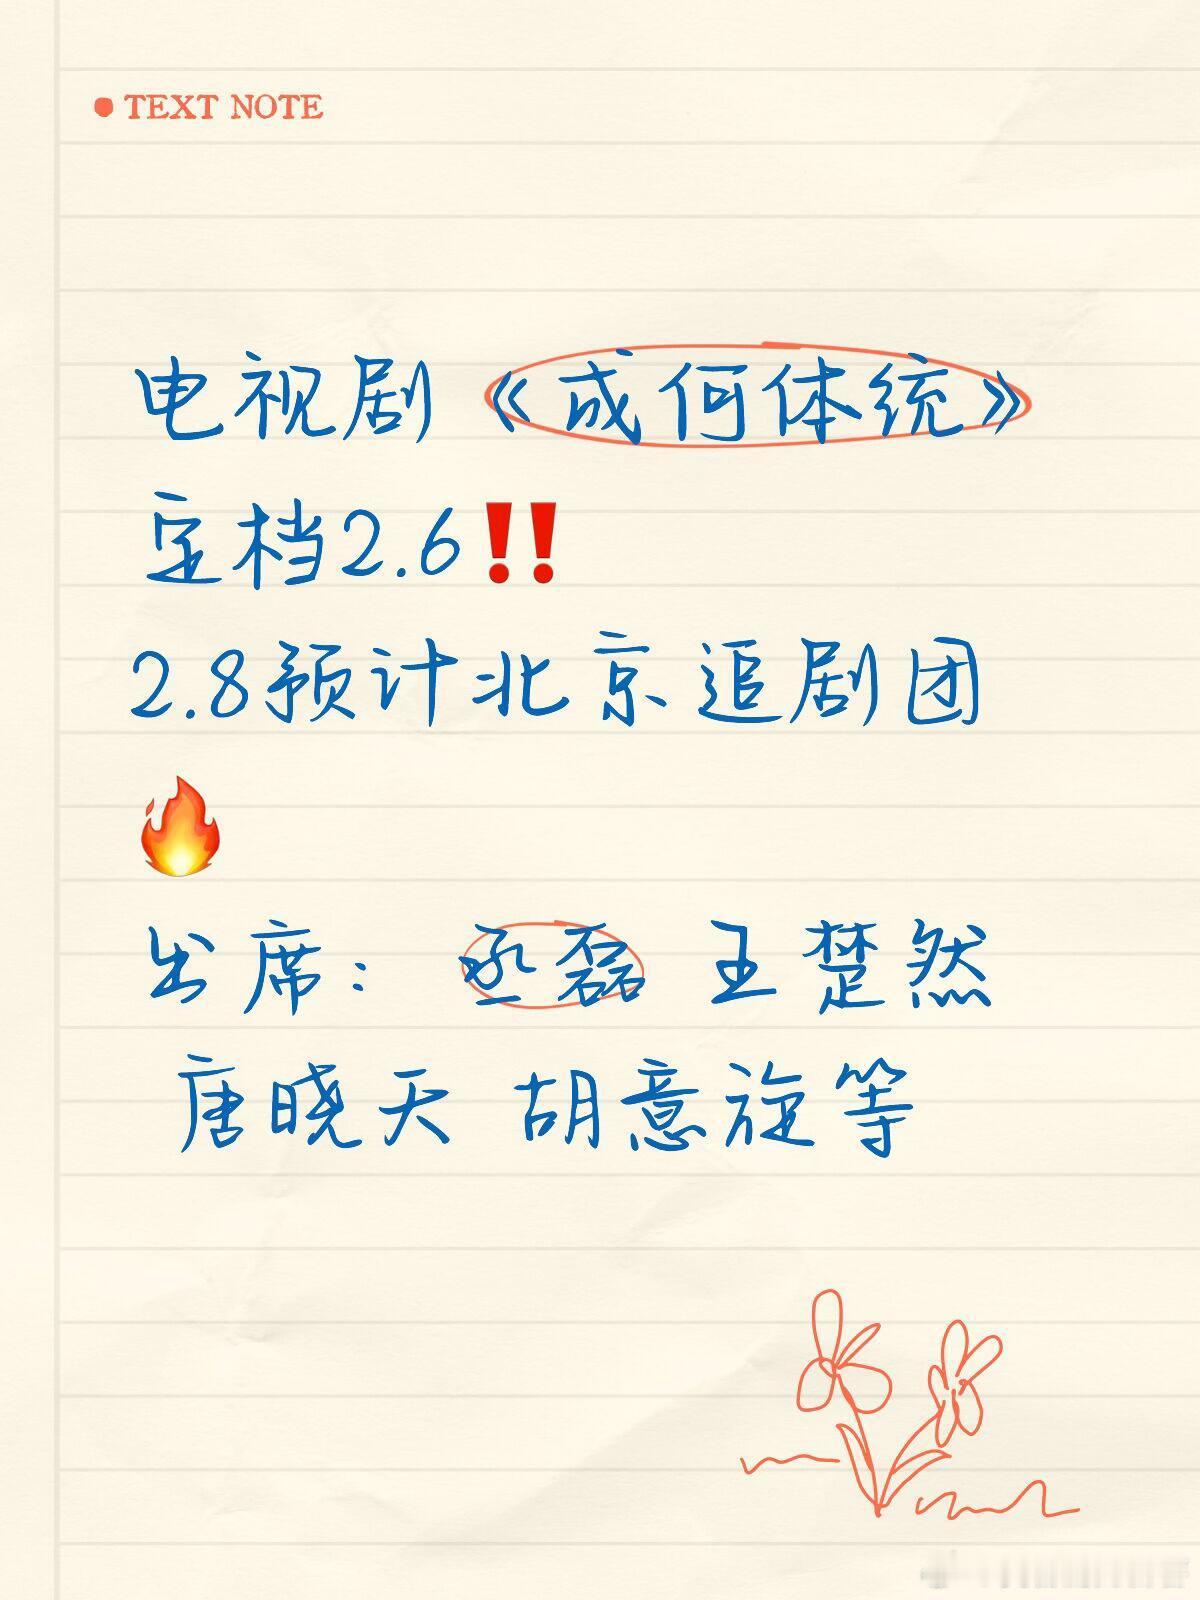 TEXT NOTE
电视剧《成何体统》
定档2.6‼️
2.8预计北京追剧团
🔥
出席： 丞磊 王楚然
唐晓天 胡意旋等